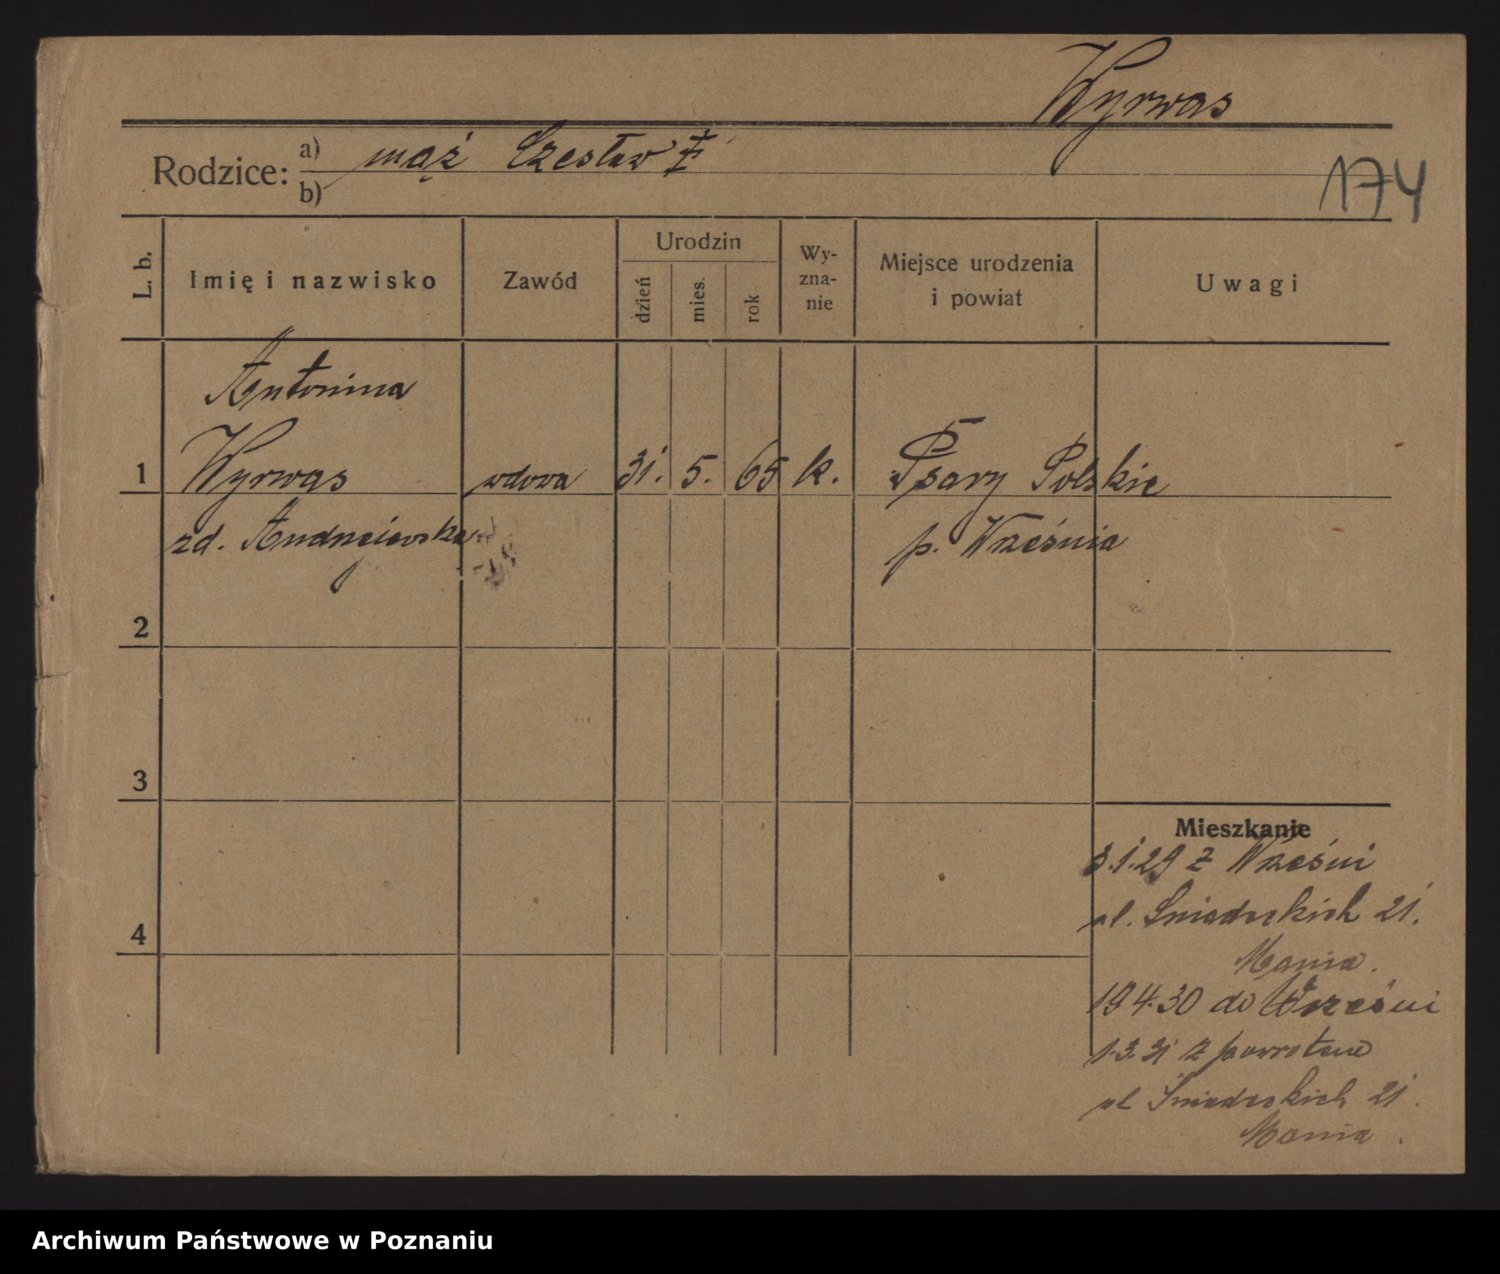 Wyrwas
Rodzice: a) mąż Czesław ‡
b)
174
L. b.
Imię i nazwisko
Zawód
Urodzin
dzień
mies.
rok
Wy-
zna-
nie
Miejsce urodzenia
i powiat
Uwagi
Antonina
1 Wyrwas wdowa 31. 5. 65 k. Psary Polskie
zd. Andrzejewska p. Września
2
3
4
Mieszkanie
3.1.29 z Wrześni
ul. Śniadeckich 21.
Mania.
19 4.30 do Wrześni
1.3.31 z powrotem
ul Śniadeckich 21.
Mania.
Archiwum Państwowe w Poznaniu